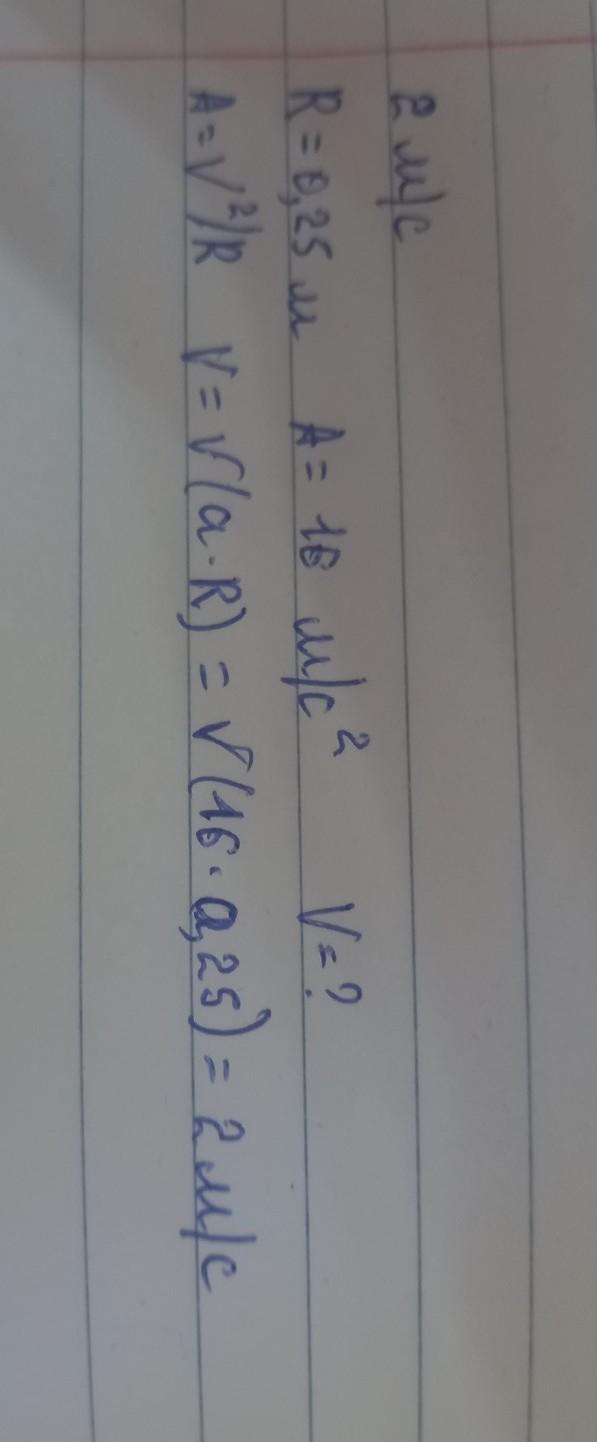 2 м/с
R = 0,25 м A = 16 м/с²  V = ?
A = V²/R V = √(a · R) = √(16 · 0,25) = 2 м/с